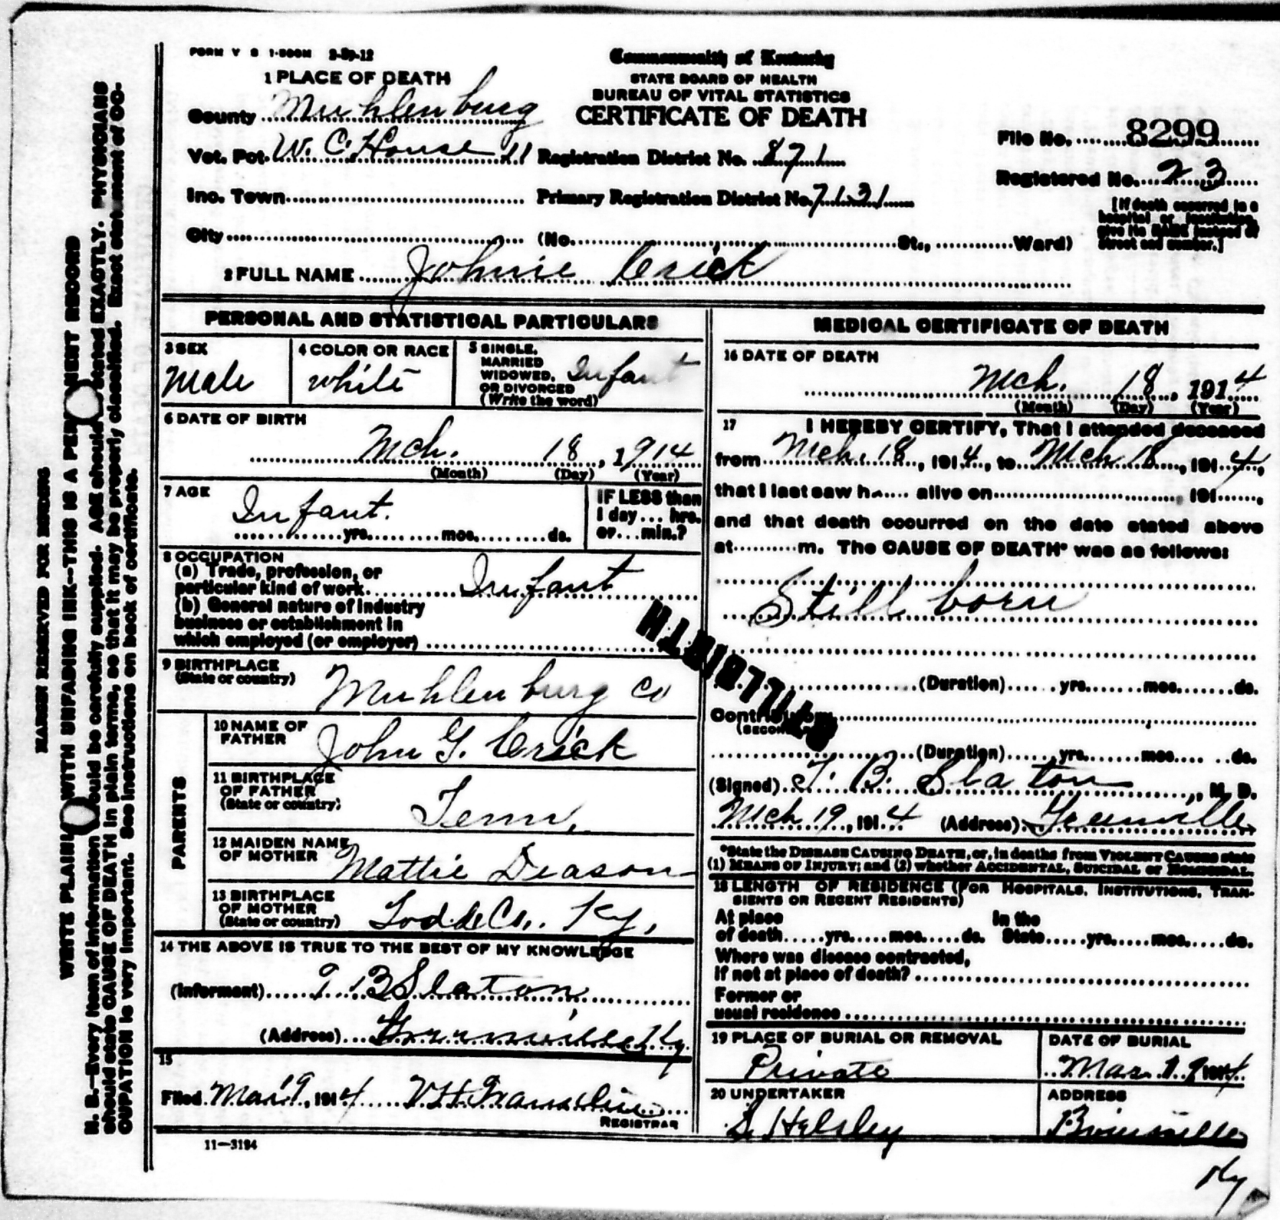 FORM V S 1-500M 2-29-12
Commonwealth of Kentucky
STATE BOARD OF HEALTH
BUREAU OF VITAL STATISTICS
CERTIFICATE OF DEATH
1 PLACE OF DEATH
County Muhlenburg
Vot. Pct. W. C. House 11 Registration District No. 871
Inc. Town Primary Registration District No. 7131
City (No. St., Ward)
File No. 8299
Registered No. 23
[If death occurred in a hospital or institution, give its NAME instead of street and number.]
2 FULL NAME Johnie Crick
PERSONAL AND STATISTICAL PARTICULARS
3 SEX
Male
4 COLOR OR RACE
white
5 SINGLE, MARRIED WIDOWED, OR DIVORCED (Write the word) Infant
6 DATE OF BIRTH
Mch. 18, 1914
(Month) (Day) (Year)
7 AGE
Infant.
yrs. mos. ds.
IF LESS than
1 day ... hrs.
or ... min.?
8 OCCUPATION
(a) Trade, profession, or
particular kind of work Infant
(b) General nature of industry
business or establishment in
which employed (or employer)
9 BIRTHPLACE
(State or country) Muhlenburg Co
PARENTS
10 NAME OF
FATHER John G. Crick
11 BIRTHPLACE
OF FATHER
(State or country) Tenn.
12 MAIDEN NAME
OF MOTHER Mattie Deason
13 BIRTHPLACE
OF MOTHER
(State or country) Todd Co., Ky.
14 THE ABOVE IS TRUE TO THE BEST OF MY KNOWLEDGE
(Informant) T B Slaton
(Address) Greenville Ky
15
Filed Mar 19, 1914
REGISTRAR
11-3184
MEDICAL CERTIFICATE OF DEATH
16 DATE OF DEATH
Mch. 18, 1914
(Month) (Day) (Year)
17 I HEREBY CERTIFY, That I attended deceased
from Mch. 18, 1914, to Mch 18, 1914,
that I last saw h alive on 191 ,
and that death occurred on the date stated above
at m. The CAUSE OF DEATH* was as follows:
Still born
STILLBIRTH
(Duration) yrs. mos. ds.
Contributory
(Secondary)
(Duration) yrs. mos. ds.
(Signed) T. B. Slaton, M. D.
Mch 19, 1914 (Address) Greenville
*State the DISEASE CAUSING DEATH, or, in deaths from VIOLENT CAUSES state
(1) MEANS OF INJURY; and (2) whether ACCIDENTAL, SUICIDAL or HOMICIDAL.
18 LENGTH OF RESIDENCE (FOR HOSPITALS, INSTITUTIONS, TRANSIENTS OR RECENT RESIDENTS)
At place In the
of death yrs. mos. ds. State yrs. mos. ds.
Where was disease contracted,
if not at place of death?
Former or
usual residence
19 PLACE OF BURIAL OR REMOVAL
Private
DATE OF BURIAL
Mar 19 1914
20 UNDERTAKER
S. Helsley
ADDRESS
Ky
MARGIN RESERVED FOR BINDING
WRITE PLAINLY WITH UNFADING INK—THIS IS A PERMANENT RECORD
N. B.—Every item of information should be carefully supplied. AGE should be stated EXACTLY. PHYSICIANS
should state CAUSE OF DEATH in plain terms, so that it may be properly classified. Exact statement of OC-
CUPATION is very important. See instructions on back of certificate.